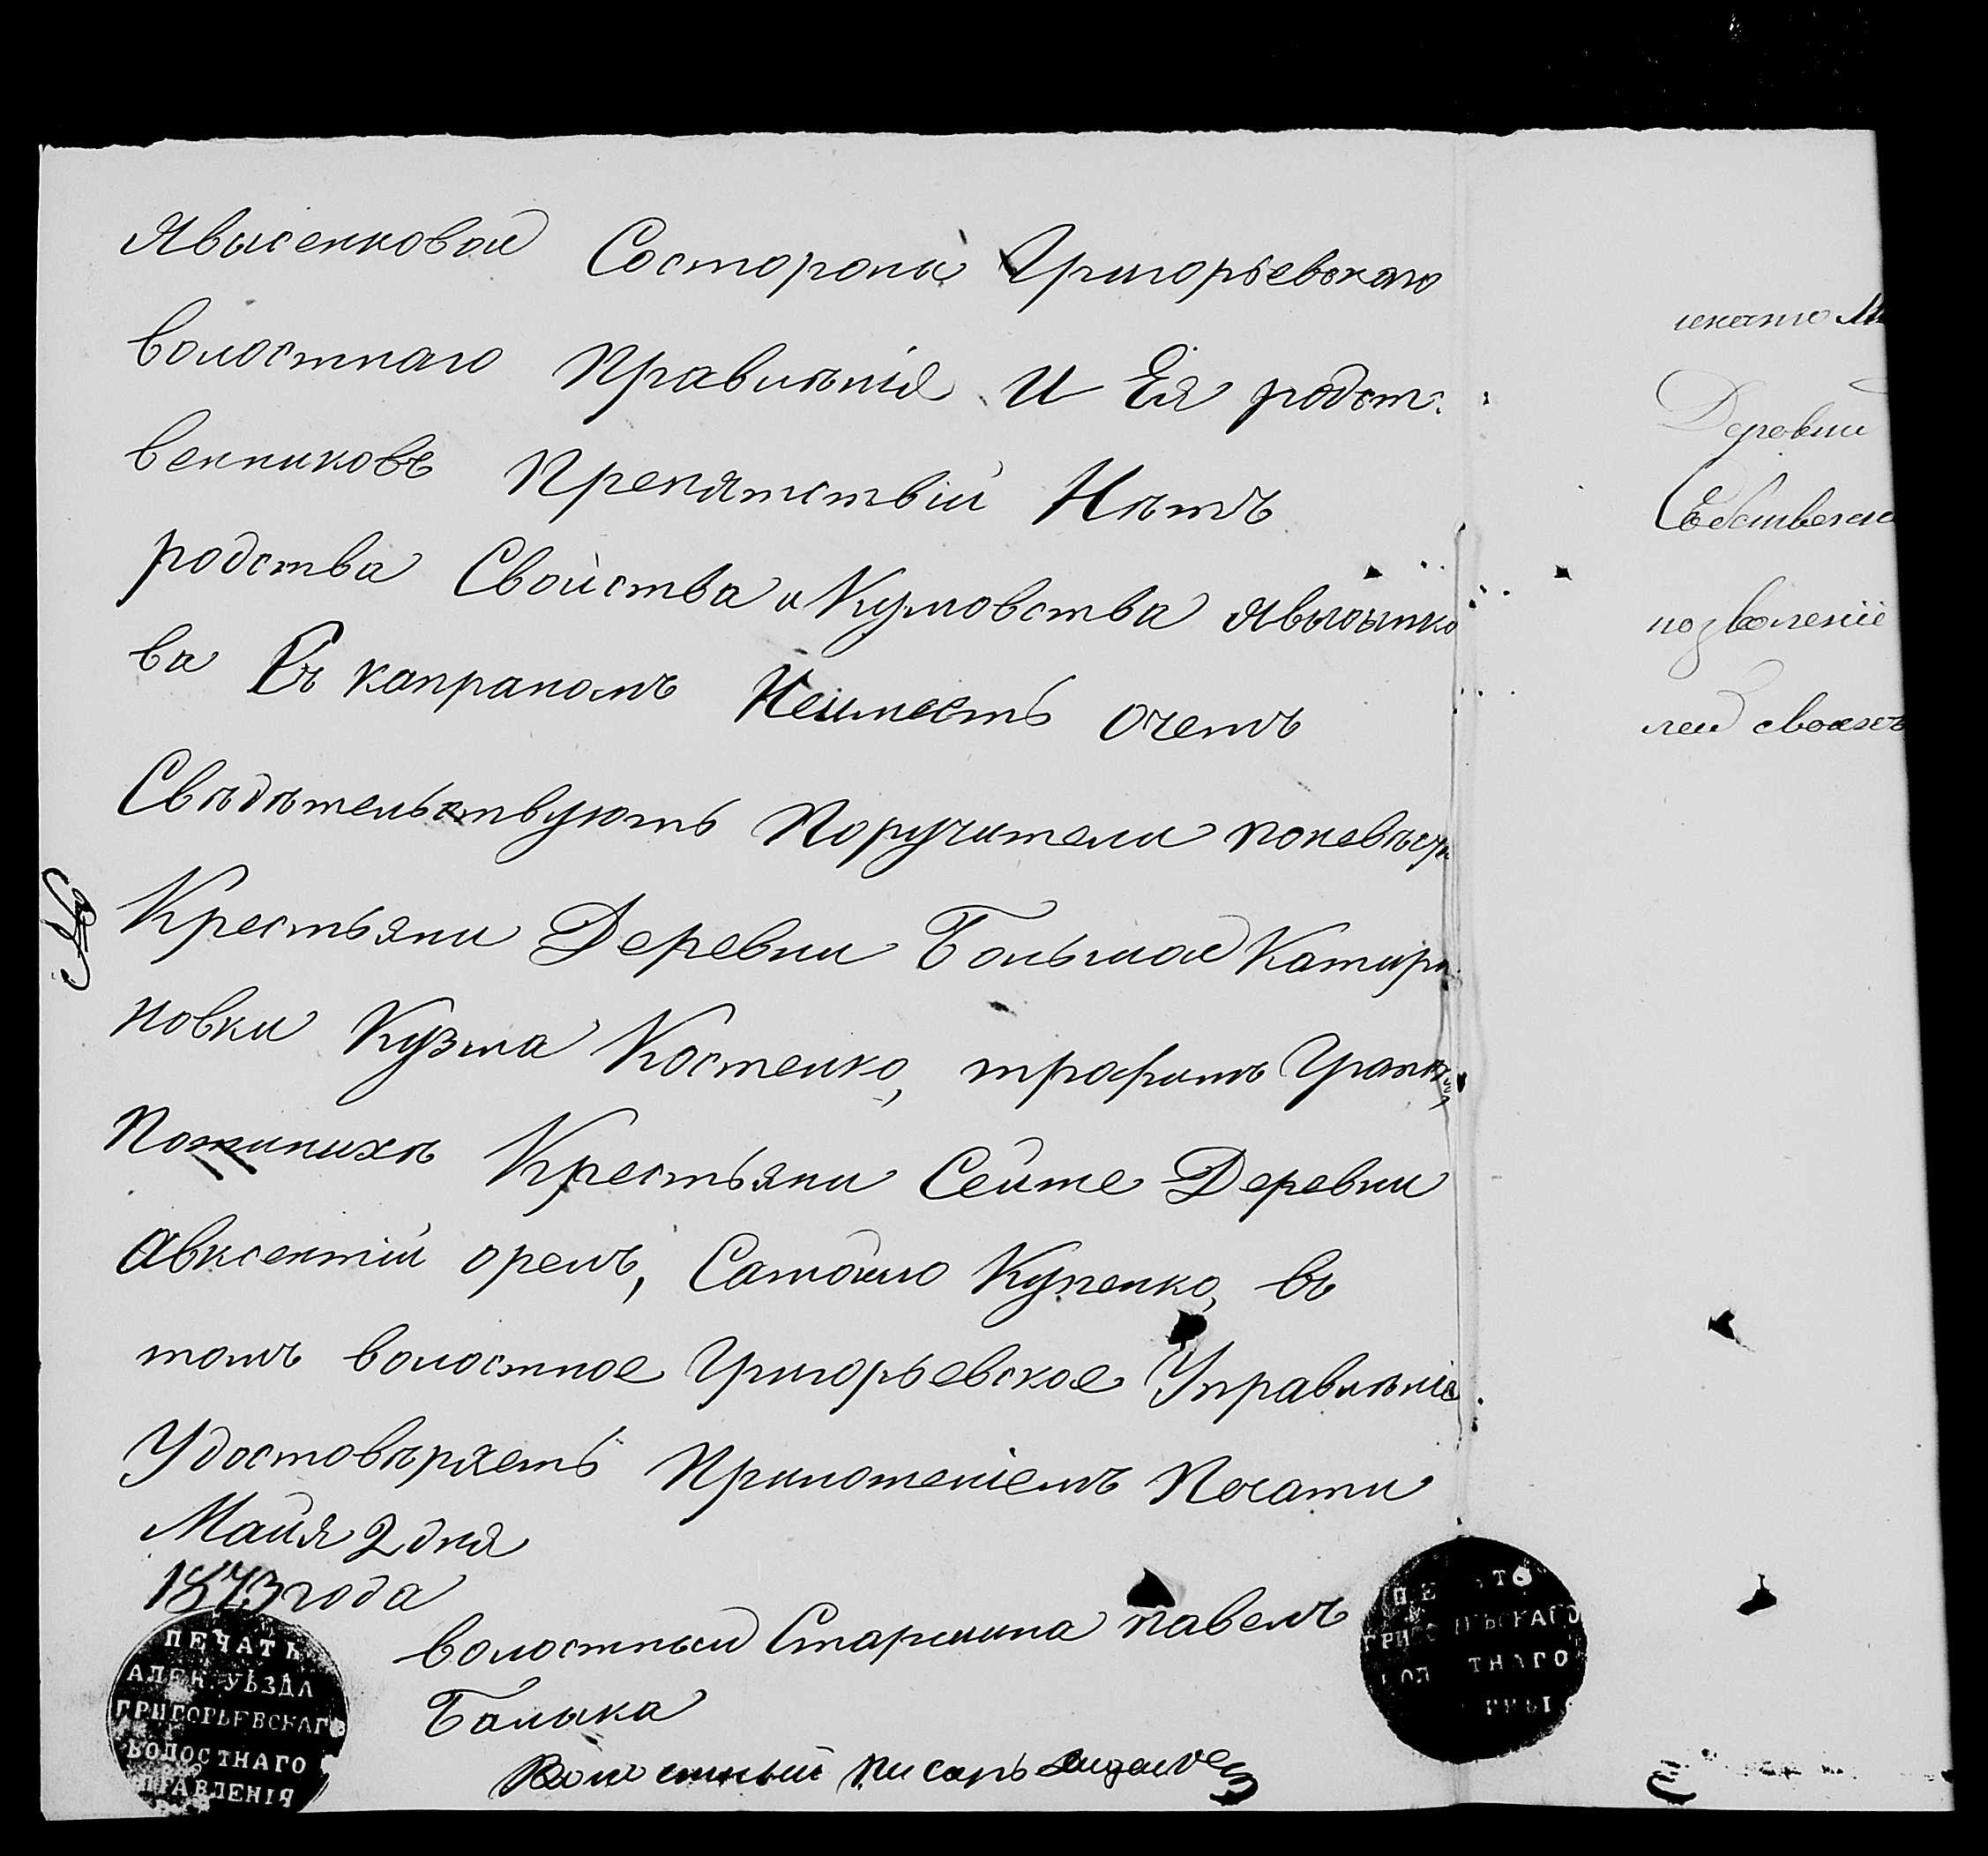 Явысенковой Состороны Григорьевскаго
волостнаго Правленія И Ея родст:
венниковъ Препятствій Нѣтъ
родства Свойства и Кумовства Явысенко
ва Съ капраномъ Неимеетъ очемъ
Свѣдѣтельствуютъ Поручители поневѣсте
Крестьяни Деревни Большой Катири
новки Кузма Костенко, трофимъ
Крестьяни Сейже Деревни
Авксентій орелъ, Самойло Купенко, въ
томъ волостное Григорьевское Управлѣніе
Удостовѣряетъ Приложеніемъ Печати
Майя 2 дня
1873 года
волостный Старшина павелъ
Балыка
Волостный писарь
ПЕЧАТЬ
АЛЕК. УѢЗДА
ГРИГОРЬЕВСКАГО
ВОЛОСТНАГО
ПРАВЛЕНІЯ
Деревни
позволеніе
лей своихъ